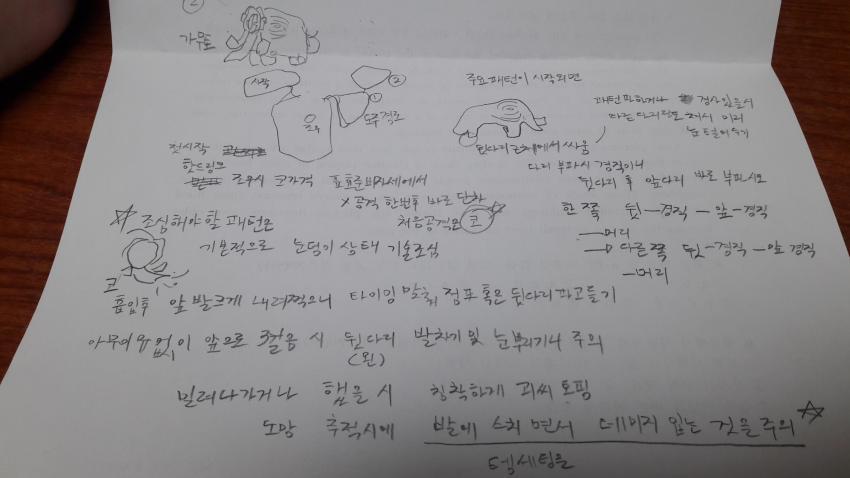 ②
가무토
시작
②
①
도주경로
주요패턴이 시작되면
패턴 파하거나 경직 있을시
다른 다리 앞으로 가서 이러
눈 털어주기
뒷다리 근처에서 싸움
다리 부파시 경직이니
뒷다리 후 앞다리 바로 부파시도
전시작
핫드링크
조우시 코가격
X공격 한번후 바로 단차
처음공격은 코
한 쪽 뒷 - 경직 - 앞 - 경직
- 머리
→ 다른쪽 뒷 - 경직 - 앞 경직
- 머리
☆ 조심해야할 패턴은
기본적으로 눈덩이 상태 기술조심
코
흡입후 앞 발크게 내려찍으니 타이밍 맞춰 점프 혹은 뒷다리파고들기
아무이유없이 앞으로 3걸음 시 뒷다리 발차기 및 눈뿌리기니 주의
(왼)
밀려나가거나 햄을 시 침착하게 피씨 토핑
도망 추적시에 발에 스치면서 데미지 입는 것을 주의 ☆